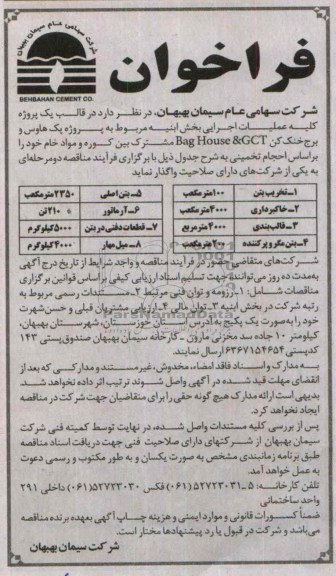 شرکت سهامی عام سیمان بهبهان
BEHBAHAN CEMENT CO.
فراخوان
شرکت سهامی عام سیمان بهبهان، در نظر دارد در قالب یک پروژه
کلیه عملیات اجرایی بخش ابنیه مربوط به پروژه یک هاوس و
برج خنک کن Bag House &GCT مشترک بین کوره و مواد خام خود را
براساس احجام تخمینی به شرح جدول ذیل با برگزاری فرآیند مناقصه دو مرحله‌ای
به یکی از شرکت‌های دارای صلاحیت واگذار نماید
۱ـ تخریب بتن ۱۰۰ مترمکعب ۵ـ بتن اصلی ۲۳۵۰ مترمکعب
۲ـ خاکبرداری ۴۰۰۰ مترمکعب ۶ـ آرماتور ۲۱۰ تن
۳ـ قالب‌بندی ۴۰۰۰ مترمربع ۷ـ قطعات دفنی در بتن ۵۰۰۰ کیلوگرم
۴ـ بتن مگر و پرکننده ۲۰۰ مترمکعب ۸ـ میل مهار ۴۰۰۰ کیلوگرم
شرکت‌های متقاضی حضور در فرآیند مناقصه و واجد شرایط از تاریخ درج آگهی
به مدت ده روز می‌توانند جهت تسلیم اسناد ارزیابی کیفی براساس قوانین برگزاری
مناقصات شامل: ۱ـ رزومه و توان فنی مرتبط ۲ـ مستندات رسمی مربوط به
رتبه شرکت در بخش ابنیه ۳ـ توان مالی ۴ـ ارزیابی مشتریان قبلی و حسن شهرت
خود را به صورت یک پکیج به آدرس استان خوزستان، شهرستان بهبهان،
کیلومتر ۱۰ جاده سد مخزنی مارون ـ کارخانه سیمان بهبهان صندوق پستی ۱۴۳
کدپستی ۶۳۶۷۱۵۴۶۵۴ ارسال نمایند.
به مدارک و اسناد فاقد امضاء، مخدوش، غیر مستند و مدارکی که بعد از
انقضای مهلت قید شده در آگهی واصل شوند ترتیب اثر داده نخواهد شد.
بدیهی است ارائه مدارک هیچ گونه حقی را برای متقاضیان جهت شرکت در مناقصه
ایجاد نخواهد کرد.
پس از بررسی کلیه مستندات واصل شده، در نهایت توسط کمیته فنی شرکت
سیمان بهبهان از شرکتهای دارای صلاحیت فنی جهت دریافت اسناد مناقصه
طبق برنامه زمانبندی مشخص به صورت یکسان و به طور مکتوب و رسمی دعوت
به عمل خواهد آمد.
تلفن کارخانه: ۵ـ۵۲۷۲۳۰۳۱ (۰۶۱) فکس ۵۲۷۲۳۰۳۰ (۰۶۱) داخلی ۲۹۱
واحد ساختمانی
ضمناً کسورات قانونی و موارد ایمنی و هزینه چاپ آگهی بعهده برنده مناقصه
می‌باشد و شرکت در قبول یا رد پیشنهادها مختار است.
شرکت سیمان بهبهان